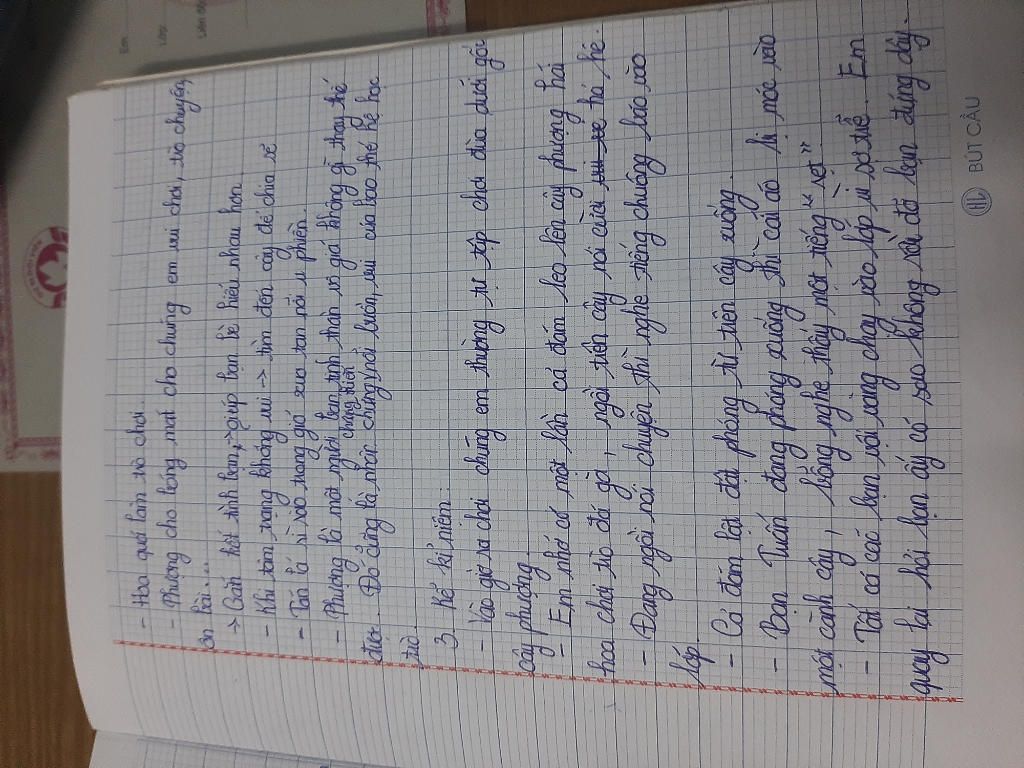 - Hoa quả làm trò chơi...
- Phượng cho bóng mát cho chúng em vui chơi, trò chuyện,
ôn bài....
-> Gắn kết tình bạn, -> giúp bạn bè hiểu nhau hơn.
- Khi tâm trạng không vui -> tìm đến cây để chia sẻ
- Tán lá rì rào trong gió xua tan nỗi ưu phiền.
- Phượng là một người bạn tinh thần vô giá không gì thay thế
được. Đó cũng là nhân chứng với buồn, vui của bao thế hệ học
chứng kiến
trò.
3. Kể kỉ niệm:
- Vào giờ ra chơi chúng em thường tụ tập chơi đùa dưới gốc
cây phượng.
- Em nhớ có một lần cả đám leo lên cây phượng hái
hoa chơi trò đá gà, ngồi trên cây nói cười há hé.
- Đang ngồi nói chuyện thì nghe tiếng chuông báo vào
lớp.
- Cả đám lật đật phóng từ trên cây xuống.
- Bạn Tuấn đang phóng xuống thì cái áo bị móc vào
một cành cây, bỗng nghe thấy một tiếng "rẹt"
- Tất cả các bạn vội vàng chạy vào lớp vì sợ trễ. Em
quay lại hỏi bạn ấy có sao không rồi đỡ bạn đứng dậy.
BÚT CẦU
Lớp